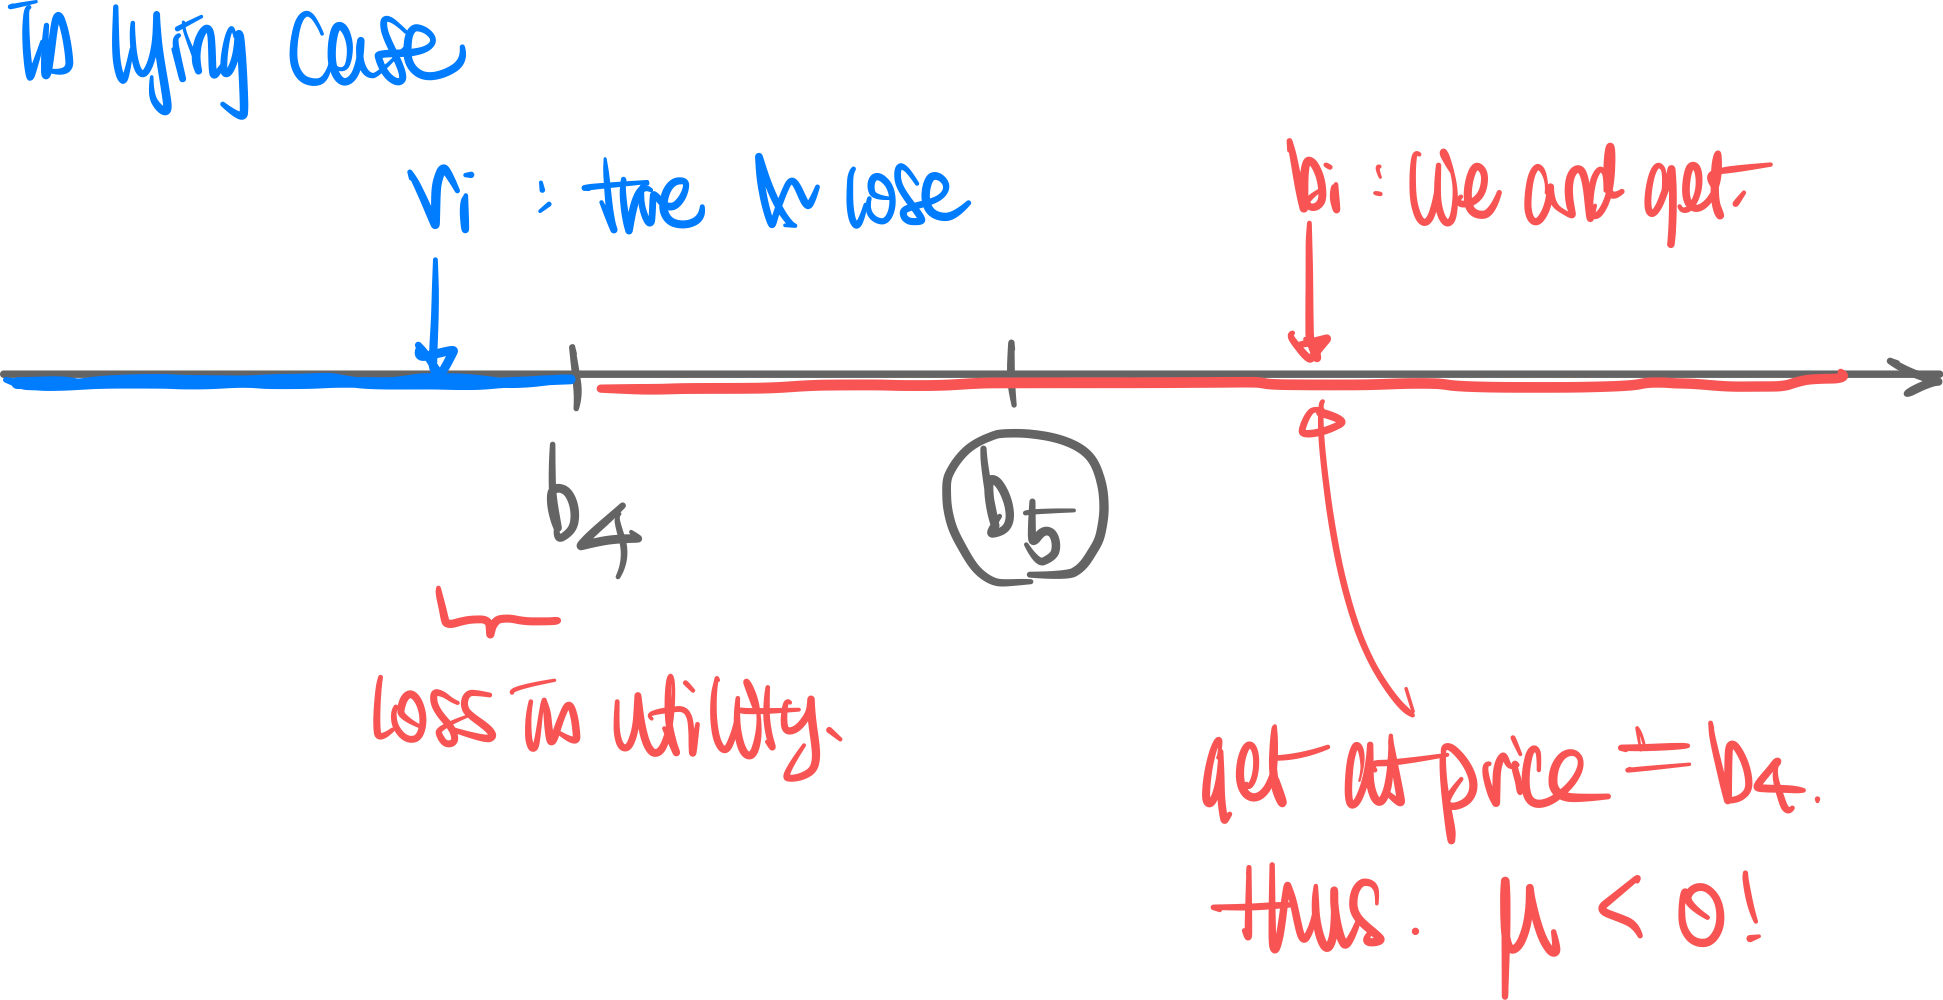 In lying case
vi : true & lose
bi : lie and get.
b4
b5
loss in utility.
get at price = b4.
thus. μ < 0!